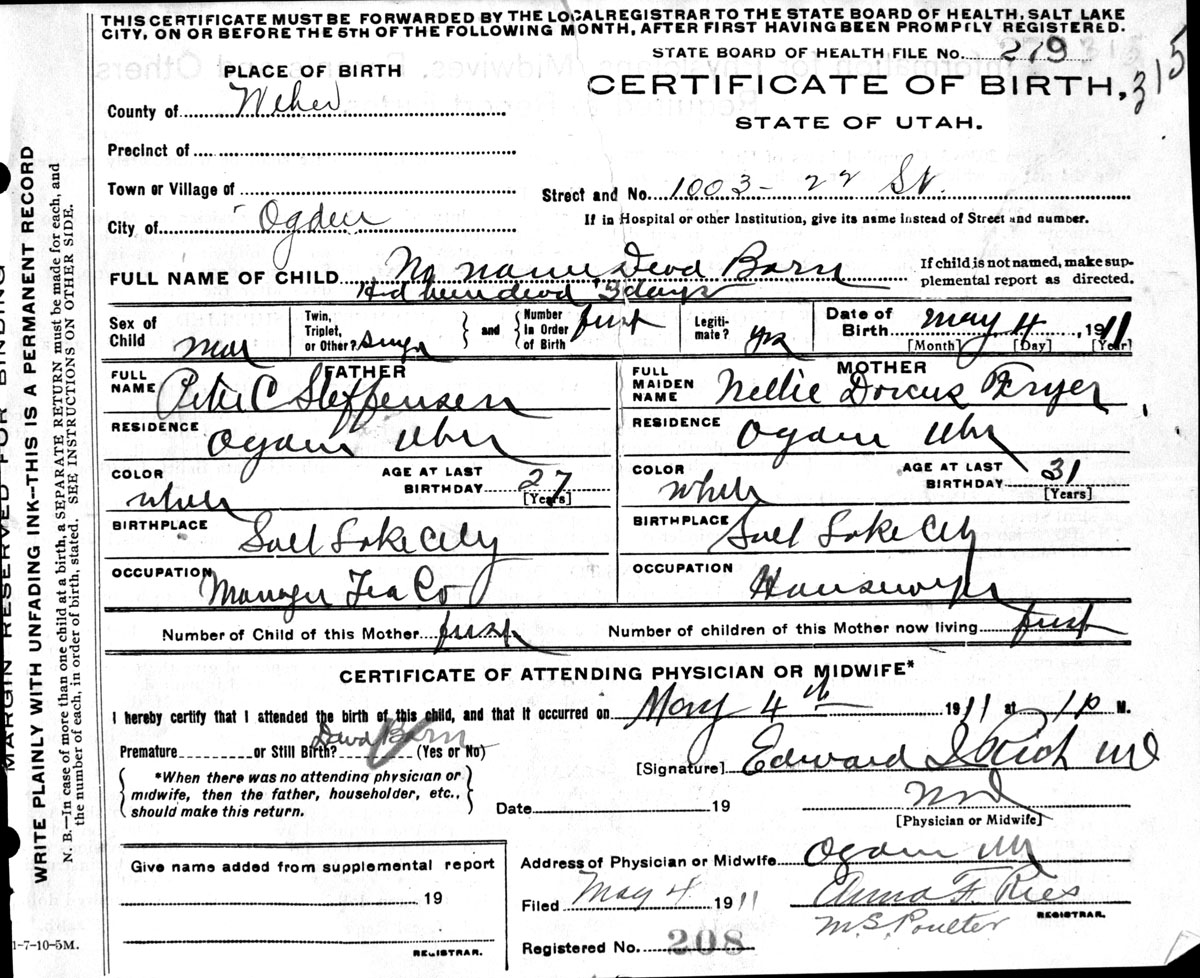 THIS CERTIFICATE MUST BE FORWARDED BY THE LOCAL REGISTRAR TO THE STATE BOARD OF HEALTH, SALT LAKE
CITY, ON OR BEFORE THE 5TH OF THE FOLLOWING MONTH, AFTER FIRST HAVING BEEN PROMPTLY REGISTERED.
STATE BOARD OF HEALTH FILE No. 279
315
PLACE OF BIRTH
CERTIFICATE OF BIRTH,
County of Weber
STATE OF UTAH.
Precinct of
Town or Village of
Street and No. 1003 - 22 St.
City of Ogden
If in Hospital or other Institution, give its name instead of Street and number.
FULL NAME OF CHILD No name Dead Born
If child is not named, make sup-
plemental report as directed.
Had been dead 3 days
Sex of Child Mal
Twin, Triplet, or Other? Singl
and
Number In Order of Birth first
Legiti-mate? yes
Date of Birth May 4, 1911
[Month] [Day] [Year]
FATHER
FULL NAME Peter C Steffensen
RESIDENCE Ogden Utah
COLOR White
AGE AT LAST BIRTHDAY 27 [Years]
BIRTHPLACE Salt Lake City
OCCUPATION Manager Tea Co
MOTHER
FULL MAIDEN NAME Nellie Dorcus Fryer
RESIDENCE Ogden Utah
COLOR White
AGE AT LAST BIRTHDAY 31 [Years]
BIRTHPLACE Salt Lake City
OCCUPATION Housewife
Number of Child of this Mother first
Number of children of this Mother now living first
CERTIFICATE OF ATTENDING PHYSICIAN OR MIDWIFE*
I hereby certify that I attended the birth of this child, and that it occurred on May 4th 1911 at 1 P M.
Dead Born
Premature or Still Birth? (Yes or No)
[Signature] Edward I Rich MD
*When there was no attending physician or
midwife, then the father, householder, etc.,
should make this return.
Date 19
MD
[Physician or Midwife]
Give name added from supplemental report
19
REGISTRAR.
Address of Physician or Midwife Ogden Ut
Filed May 4 1911
Anna F. Ries
M. S. Poulter
REGISTRAR.
Registered No. 208
1-7-10-5M.
MARGIN RESERVED FOR BINDING
WRITE PLAINLY WITH UNFADING INK—THIS IS A PERMANENT RECORD
N. B.—In case of more than one child at a birth, a SEPARATE RETURN must be made for each, and
the number of each, in order of birth, stated. SEE INSTRUCTIONS ON OTHER SIDE.